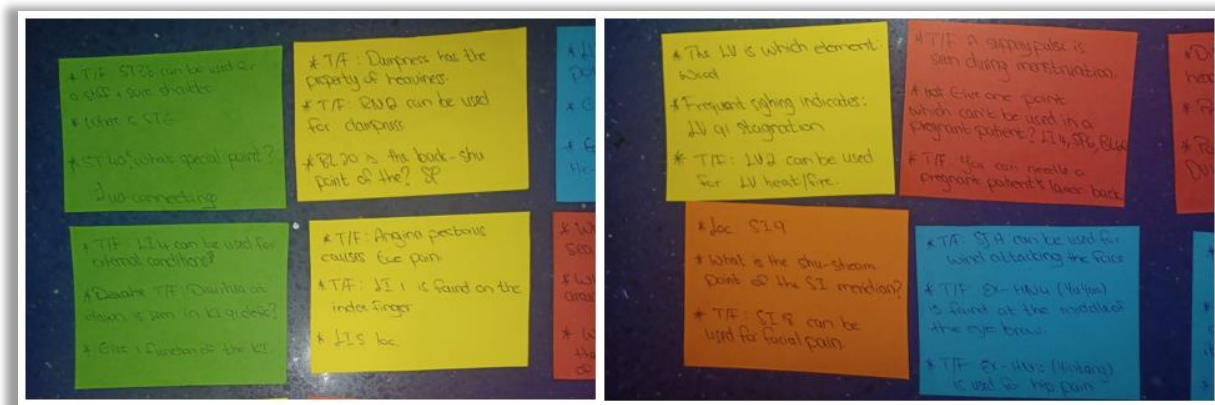 * T/F: ST38 can be used for
a stiff + sore shoulder
* Where is ST6
* ST40: what special point?
Luo-connecting
* T/F: Dampness has the
property of heaviness.
* T/F: can be used
for dampness
* BL20 is the back-shu
point of the? SP
* T/F: LI4 can be used for
external conditions?
* T/F: at
dawn is seen in KI qi defic?
* Give 1 function of the KI.
* T/F: Angina pectoris
causes pain.
* T/F: LI1 is found on the
index finger
* LI5 loc
* The LV is which element:
Wood
* Frequent sighing indicates:
LV qi stagnation
* T/F: LV2 can be used
for LV heat/fire.
* T/F A slippery pulse is
seen during menstruation.
* Give one point
which can't be used in a
pregnant patient? LI4, SP6, BL60
* T/F You can needle a
pregnant patient's lower back
* Loc SI9
* What is the shu-stream
point of the SI meridian?
* T/F: SI8 can be
used for facial pain
* T/F: can be used for
wind attacking the face
* T/F: Ex-HN4 (Yuyao)
is found at the middle of
the eye brow.
* T/F Ex-HN3 (Yintang)
is used for hip pain